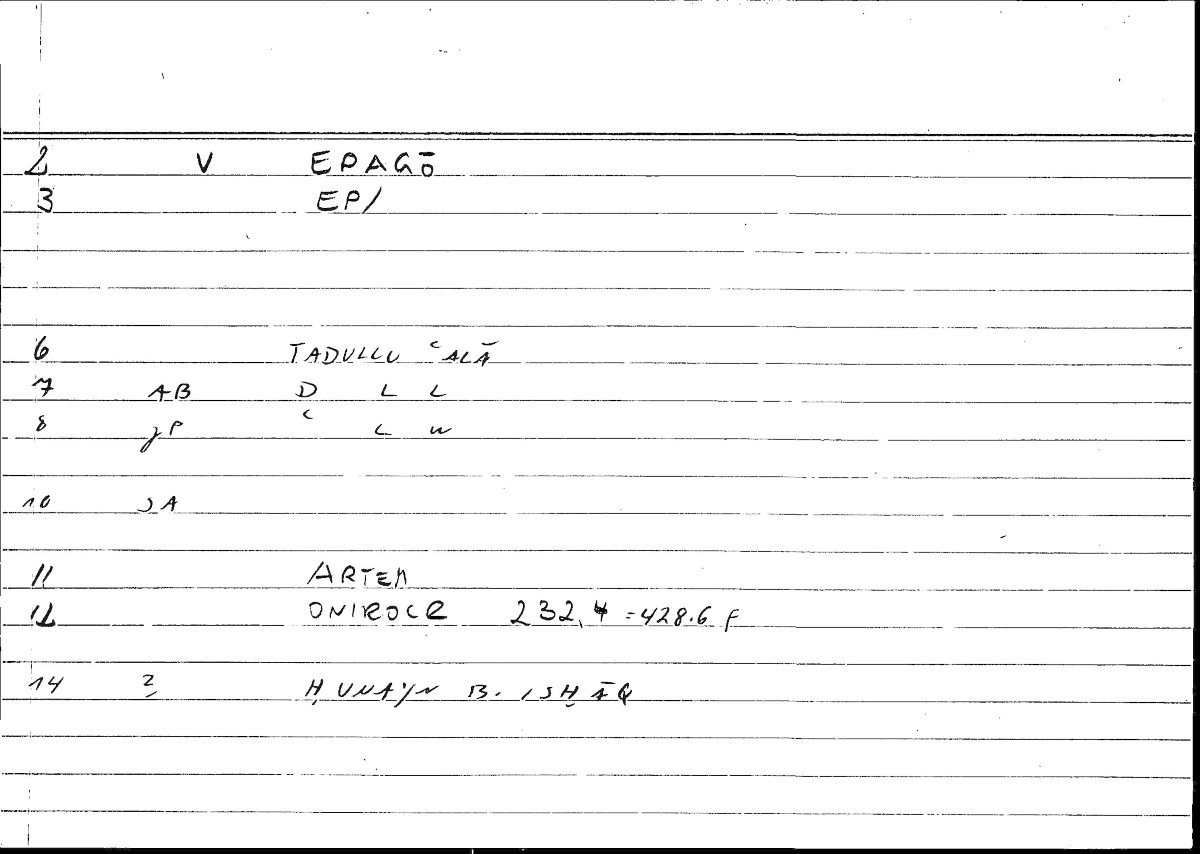 2 V EPAGŌ
3 EP/
6 TADULLU ʿALĀ
7 AB D L L
8 jP ʿ L w
10 JA
11 ARTEM
12 ONIROCR 232,4 = 428.6 f
14 2 ḤUNAYN B. ISḤĀQ